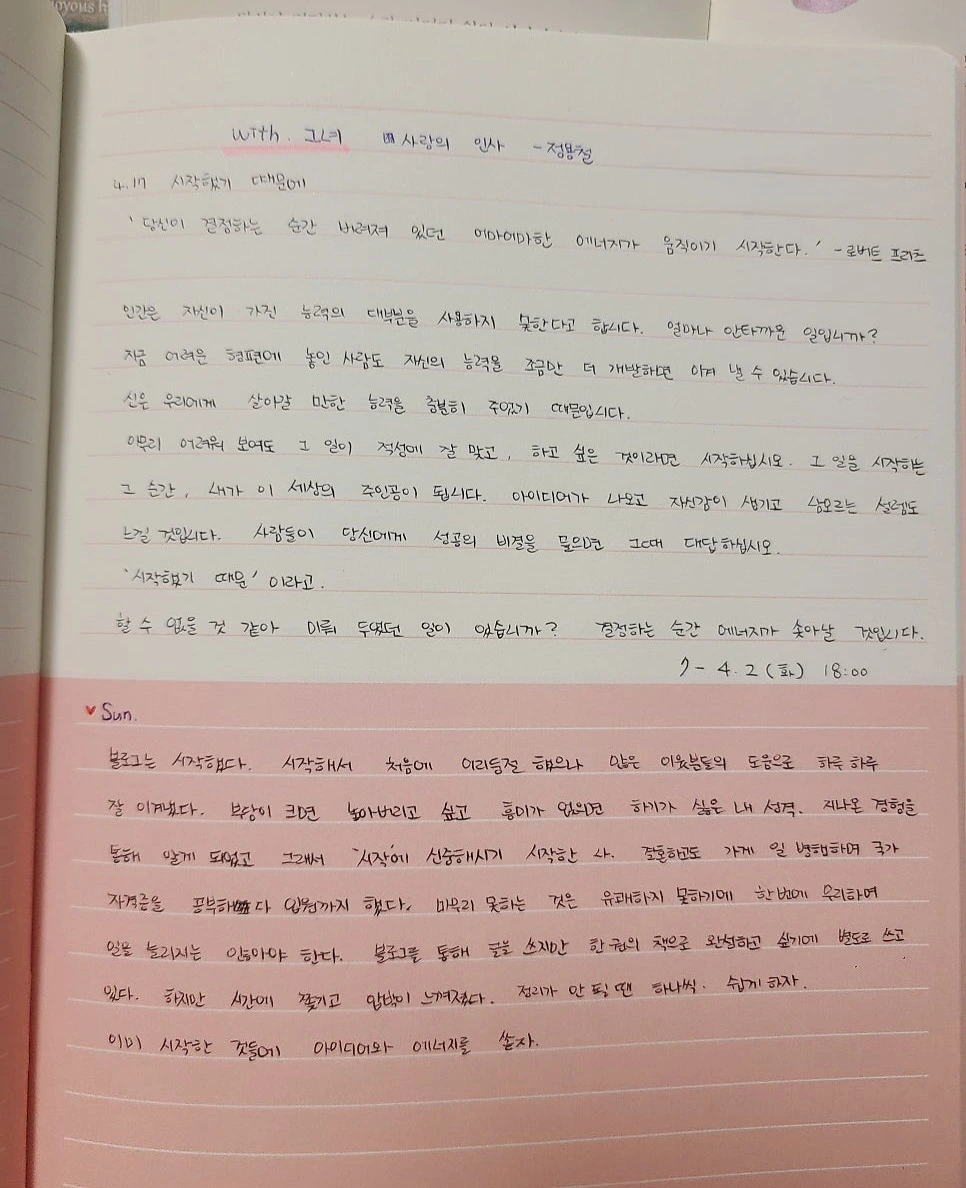 oyous h
with. 그녀 사랑의 인사 - 정용철
4.17 시작했기 때문에
'당신이 결정하는 순간 버려져 있던 어마어마한 에너지가 움직이기 시작한다.' - 로버트 프리츠
인간은 자신이 가진 능력의 대부분을 사용하지 못한다고 합니다. 얼마나 안타까운 일입니까?
지금 어려운 형편에 놓인 사람도 자신의 능력을 조금만 더 개발하면 이겨 낼 수 있습니다.
신은 우리에게 살아갈 만한 능력을 충분히 주었기 때문입니다.
아무리 어려워 보여도 그 일이 적성에 잘 맞고, 하고 싶은 것이라면 시작하십시오. 그 일을 시작하는
그 순간, 내가 이 세상의 주인공이 됩니다. 아이디어가 나오고 자신감이 생기고 샘오르는 설렘도
느낄 것입니다. 사람들이 당신에게 성공의 비결을 물으면 그때 대답하십시오.
'시작했기 때문' 이라고.
할 수 없을 것 같아 미뤄 두었던 일이 있습니까? 결정하는 순간 에너지가 솟아날 것입니다.
4.2 (화) 18:00
♥ Sun.
블로그는 시작했다. 시작해서 처음에 어리둥절 했으나 많은 이웃분들의 도움으로 하루 하루
잘 이겨냈다. 부담이 크면 놓아버리고 싶고 흥미가 없으면 하기가 싫은 내 성격. 지나온 경험을
통해 알게 되었고 그래서 '시작'에 신중해지기 시작한 나. 결혼하고도 가게 일 병행하며 국가
자격증을 공부하다 입원까지 했다. 마무리 못하는 것은 유쾌하지 못하기에 한번에 무리하여
일을 늘리지는 않아야 한다. 블로그를 통해 글을 쓰지만 한 권의 책으로 완성하고 싶기에 별도로 쓰고
있다. 하지만 시간에 쫓기고 압박이 느껴졌다. 정리가 안 될 땐 하나씩. 쉽게 하자.
이미 시작한 것들에 아이디어와 에너지를 쏟자.